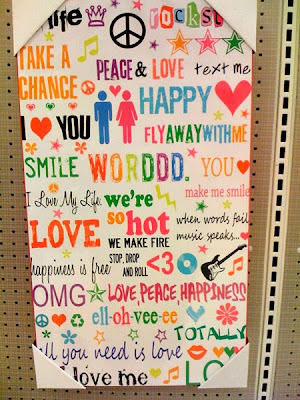 life rocks!
TAKE A
CHANCE
PEACE & LOVE text me
HAPPY
I YOU
FLYAWAYWITHME
SMILE WORDDD. YOU
I Love My Life. we're make me smile
so hot when words fail
LOVE WE MAKE FIRE music speaks...
STOP, DROP
happiness is free AND ROLL <3
OMG LOVE, PEACE, HAPPINESS
ell-oh-vee-ee
TOTALLY
all you need is love
love me LO